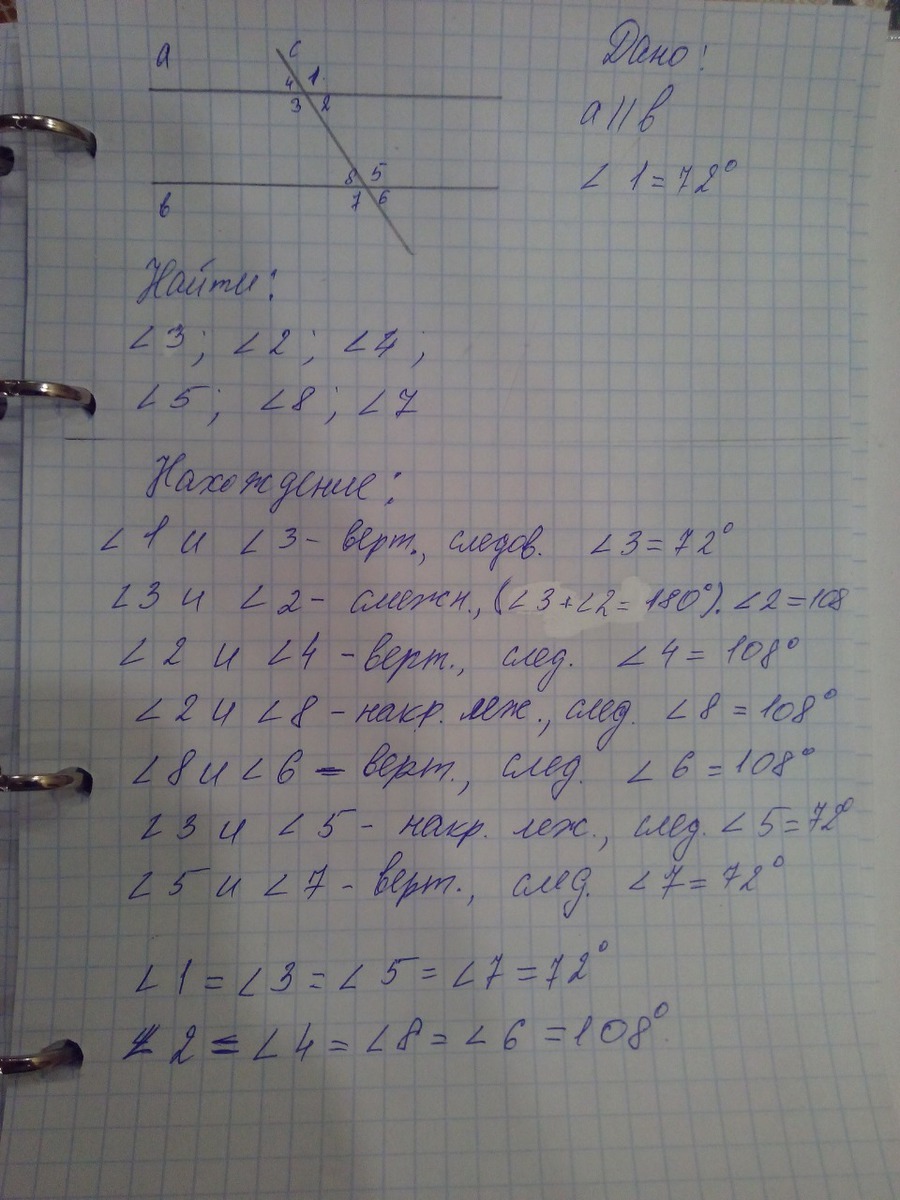 а
с
4 1
3 2
8 5
7 6
в
Дано:
a || b
∠ 1 = 72°
Найти:
∠3; ∠2; ∠4;
∠5; ∠8; ∠7
Нахождение:
∠1 и ∠3 - верт., следов. ∠3 = 72°
∠3 и ∠2 - смежн., (∠3+∠2= 180°). ∠2 = 108
∠2 и ∠4 - верт., след. ∠4 = 108°
∠2 и ∠8 - накр. леж., след. ∠8 = 108°
∠8 и ∠6 - верт., след. ∠6 = 108°
∠3 и ∠5 - накр. леж., след. ∠5 = 72°
∠5 и ∠7 - верт., след. ∠7 = 72°
∠1 = ∠3 = ∠5 = ∠7 = 72°
∠2 = ∠4 = ∠8 = ∠6 = 108°